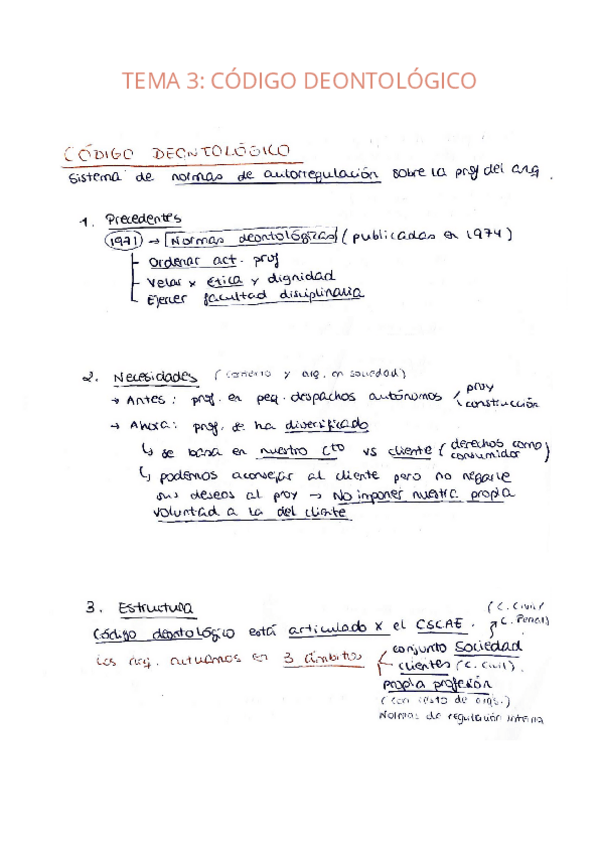 TEMA 3: CÓDIGO DEONTOLÓGICO
CÓDIGO DEONTOLÓGICO
Sistema de normas de autorregulación sobre la prof del arq.
1. Precedentes
1971 → Normas deontológicas (publicadas en 1974)
Ordenar act. prof
Velar x ética y dignidad
Ejercer facultad disciplinaria
2. Necesidades (comercio y arq. en sociedad)
→ Antes: prof. en peq. despachos autónomos proy
construcción
→ Ahora: prof. se ha diversificado
↳ se basa en nuestro Cto vs cliente (derechos como
consumidor)
↳ podemos aconsejar al cliente pero no negarle
sus deseos al proy → No imponer nuestra propia
voluntad a la del cliente
3. Estructura
(C. Civil
Código deontológico está articulado x el CSCAE. C. Penal)
Los arq. actuamos en 3 ámbitos conjunto sociedad
clientes (C. Civil).
propia profesión
(con resto de arqs.)
Normas de regulación interna